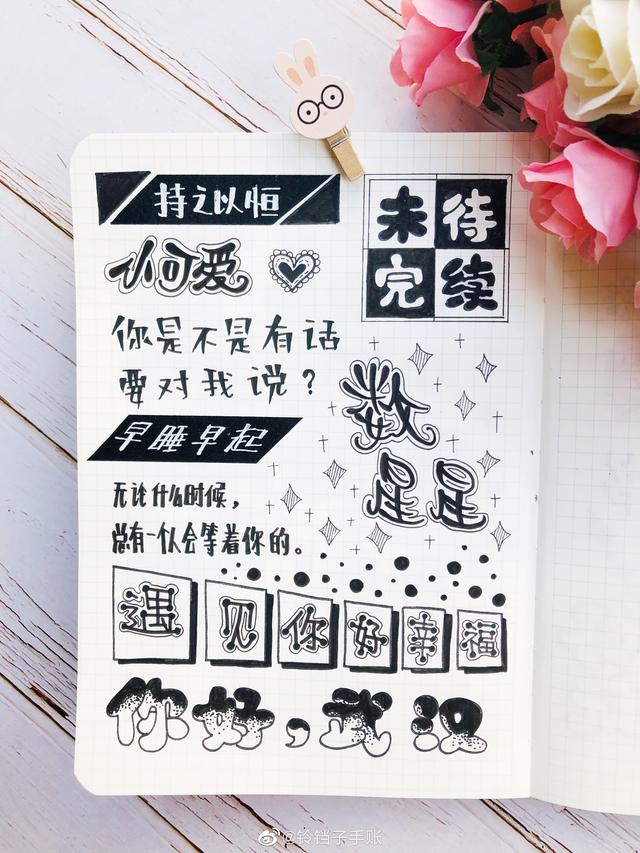 持之以恒
未待
完续
小可爱
你是不是有话
要对我说？
数
星星
早睡早起
无论什么时候，
总有一人会等着你的。
遇见你好幸福
你好，武汉
@铃铛子手账